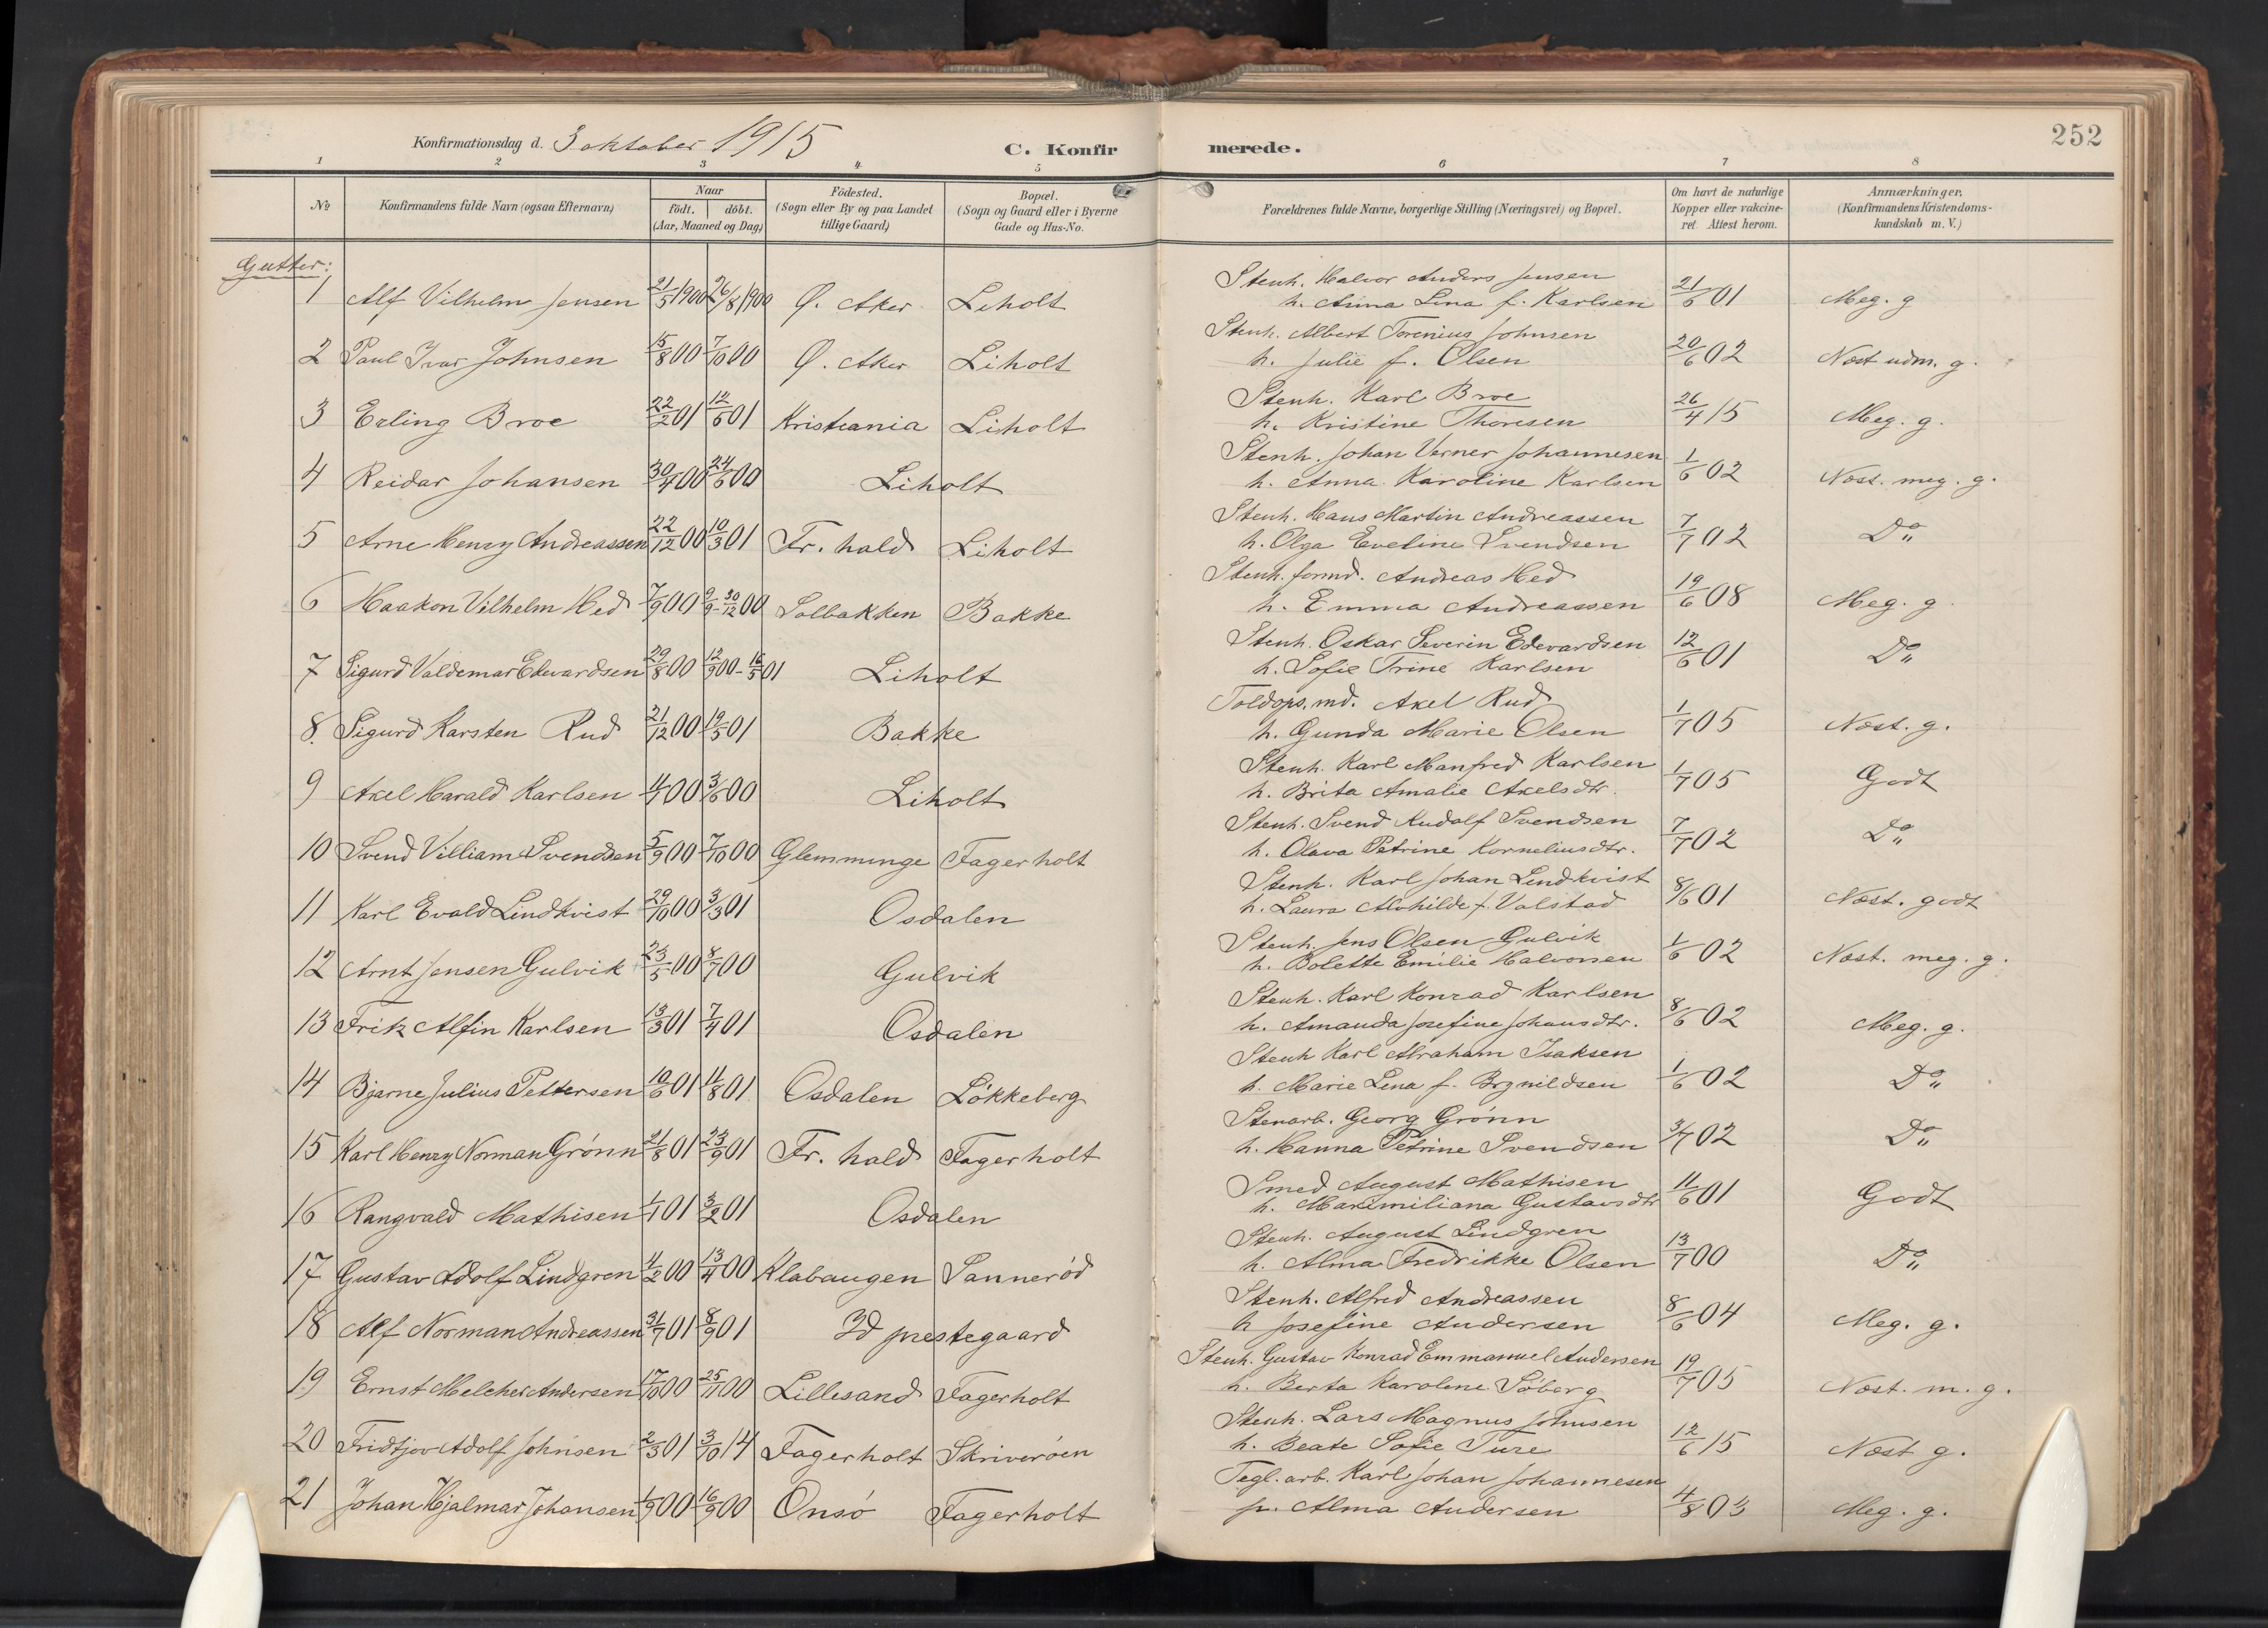 Konfirmationsdag d. 3 oktober 1915 C. Konfirmerede. 252
1 2 3 4 5 6 7 8
№ Konfirmandens fulde Navn (ogsaa Efternavn) Naar födt. döbt. (Aar, Maaned og Dag) Födested. (Sogn eller By og paa Landet tillige Gaard) Bopæl. (Sogn og Gaard eller i Byerne Gade og Hus-No. Forældrenes fulde Navne, borgerlige Stilling (Næringsvei) og Bopæl. Om havt de naturlige Kopper eller vakcineret. Attest herom. Anmærkninger. (Konfirmandens Kristendomskundskab m. V.)
Gutter:
1 Alf Vilhelm Jensen 21/5 1900 26/8 1900 Ø. Aker Liholt Stenh. Halvor Anders Jensen h. Anna Lena f. Karlsen 21/6 01 Meg. g
2 Paul Ivar Johnsen 15/8 00 7/10 00 Ø. Aker Liholt Stenh. Albert Torenius Johnsen h. Julie f. Olsen 20/6 02 Næst udm. g.
3 Erling Broe 22/2 01 12/6 01 Kristiania Liholt Stenh. Karl Broe h. Kristine Thoresen 26/4 15 Meg. g.
4 Reidar Johansen 30/4 00 24/6 00 Liholt Stenh. Johan Verner Johannesen h. Anna Karoline Karlsen 1/6 02 Næst. meg. g.
5 Arne Henry Andreassen 22/12 00 10/3 01 Fr. hald Liholt Stenh. Hans Martin Andreassen h. Olga Eveline Svendsen 7/7 02 Do
6 Haakon Vilhelm Hed 7/9 00 9/9 - 30/12 00 Solbakken Bakke Stenh. formd. Andreas Hed h. Emma Andreassen 19/6 08 Meg. g.
7 Sigurd Valdemar Edevardsen 29/8 00 12/9 00 - 16/5 01 Liholt Stenh. Oskar Severin Edevardsen h. Sofie Trine Karlsen 12/6 01 Do
8. Sigurd Karsten Rud 21/12 00 19/5 01 Bakke Toldops. md. Axel Rud h. Gunda Marie Olsen 1/7 05 Næst. g.
9 Axel Harald Karlsen 4/4 00 3/6 00 Liholt Stenh. Karl Manfred Karlsen h. Brita Amalie Axelsdtr. 1/7 05 Godt
10 Svend Villiam Svendsen 5/9 00 7/10 00 Glemminge Fagerholt Stenh. Svend Rudolf Svendsen h. Olava Petrine Korneliusdtr. 7/7 02 Do
11 Karl Evald Lindkvist 29/10 00 3/3 01 Osdalen Stenh. Karl Johan Lindkvist h. Laura Alvhilde f. Valstad 8/6 01 Næst. godt
12 Arnt Jensen Gulvik 23/5 00 8/7 00 Gulvik Stenh. Jens Olsen Gulvik h. Bolette Emilie Halvorsen 1/6 02 Næst. meg. g.
13 Frik Alfin Karlsen 13/3 01 7/4 01 Osdalen Stenh. Karl Konrad Karlsen h. Amanda Josefine Johansdtr. 8/6 02 Meg. g.
14 Bjarne Julius Pettersen 10/6 01 11/8 01 Osdalen Lökkeberg Stenh Karl Abraham Isaksen h. Marie Lena f. Brynildsen 1/6 02 Do
15 Karl Henry Norman Grönn 21/8 01 23/9 01 Fr. hald Fagerholt Stenarb. Georg Grönn h. Hanna Petrine Svendsen 3/7 02 Do
16 Rangvald Mathisen 1/1 01 3/2 01 Osdalen Smed August Mathisen h. Maximiliana Gustavsdtr 11/6 01 Godt
17 Gustav Adolf Lindgren 4/2 00 13/4 00 Klabaugen Sanneröd Stenh. August Lindgren h. Alma Fredrikke Olsen 13/7 00 Do
18 Alf Norman Andreassen 31/7 01 8/9 01 Id prestegaard Stenh. Alfred Andreassen h Josefine Andersen 8/6 04 Meg. g.
19 Ernst Melcher Andersen 17/10 00 25/11 00 Lillesand Fagerholt Stenh. Gustav Konrad Emmanuel Andersen h. Berta Karoline Söberg 19/7 05 Næst. m. g.
20 Fridtjov Adolf Johnsen 2/3 01 3/10 14 Fagerholt Skriveröen Stenh. Lars Magnus Johnsen h. Beate Sofie Ture 12/6 15 Næst g.
21 Johan Hjalmar Johansen 1/9 00 16/9 00 Onsö Fagerholt Tegl. arb. Karl Johan Johannesen p. Alma Andersen 4/8 03 Meg. g.